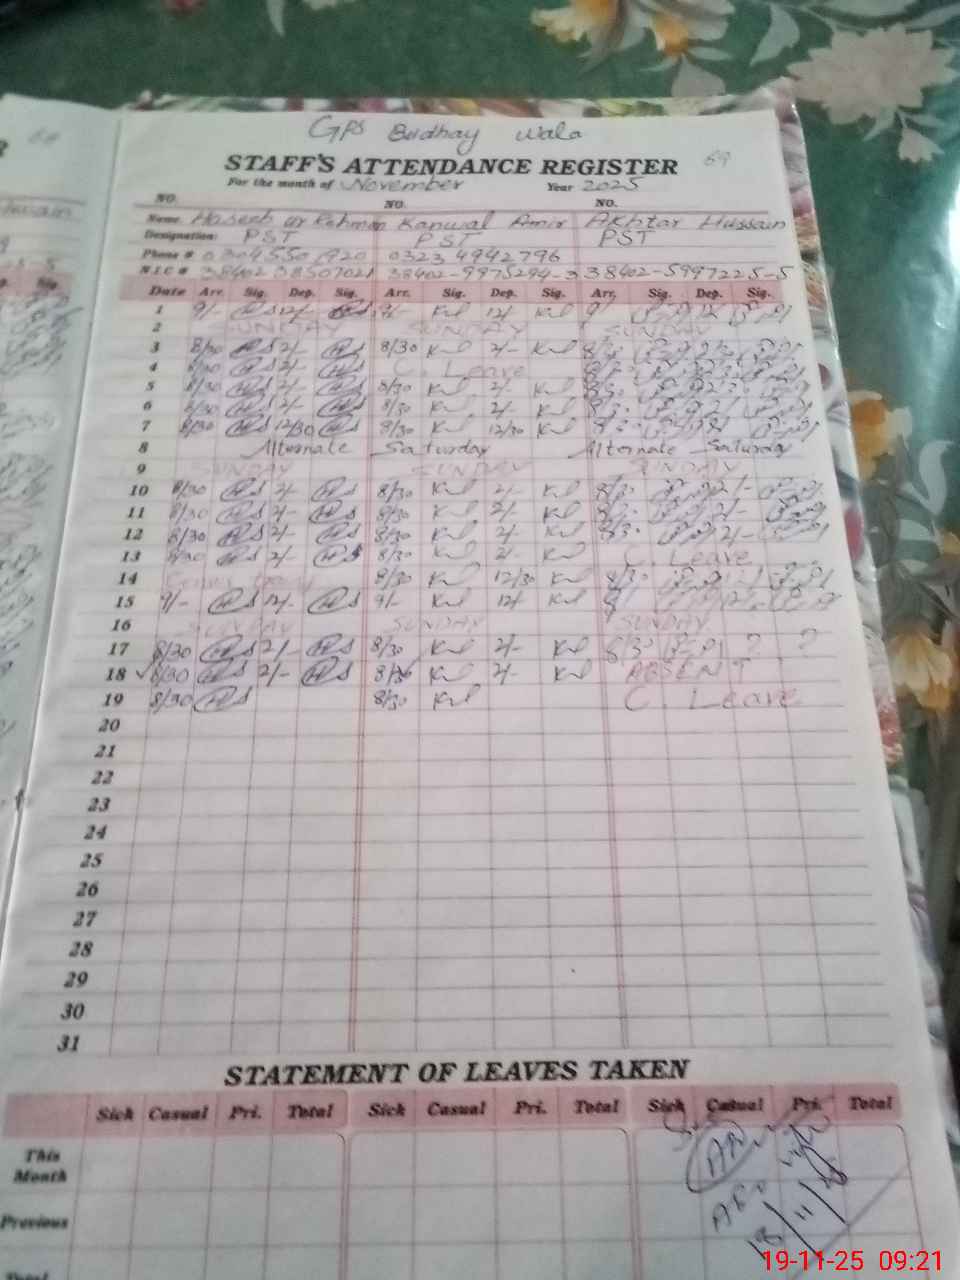 GPS Budhay Wala
STAFF'S ATTENDANCE REGISTER 69
For the month of November Year 2025
NO. NO. NO.
Name Haseeb ur Rehman Kanwal Amir Akhtar Hussain
Designation: PST PST PST
Phone # 0304 5501920 0323 4942796
N.I.C # 38402 38507021 38402-9975294-3 38402-5997225-5
Date Arr. Sig. Dep. Sig. Arr. Sig. Dep. Sig. Arr. Sig. Dep. Sig.
1 9/- 12/- 9/- 12/- 9/-
2 SUNDAY SUNDAY SUNDAY
3 8/30 2/- 8/30 2/- 8/30
4 8/30 2/- C. Leave 8/30
5 8/30 2/- 8/30 2/- 8/30
6 8/30 2/- 8/30 2/- 8/30
7 8/30 12/30 8/30 12/30 8/30
8 Alternate Saturday Alternate Saturday
9 SUNDAY SUNDAY SUNDAY
10 8/30 2/- 8/30 2/- 8/30 2/-
11 8/30 2/- 8/30 2/- 8/30 2/-
12 8/30 2/- 8/30 2/- 8/30 2/-
13 8/30 2/- 8/30 2/- C. Leave
14 8/30 12/30 8/30
15 9/- 12/- 9/- 12/-
16 SUNDAY SUNDAY SUNDAY
17 8/30 2/- 8/30 2/- 8/30 ? ?
18 8/30 2/- 8/30 2/- ABSENT
19 8/30 8/30 C. Leave
20
21
22
23
24
25
26
27
28
29
30
31
STATEMENT OF LEAVES TAKEN
Sick Casual Pri. Total Sick Casual Pri. Total Sick Casual Pri. Total
This
Month
Previous
Total
18/11/25
19-11-25 09:21